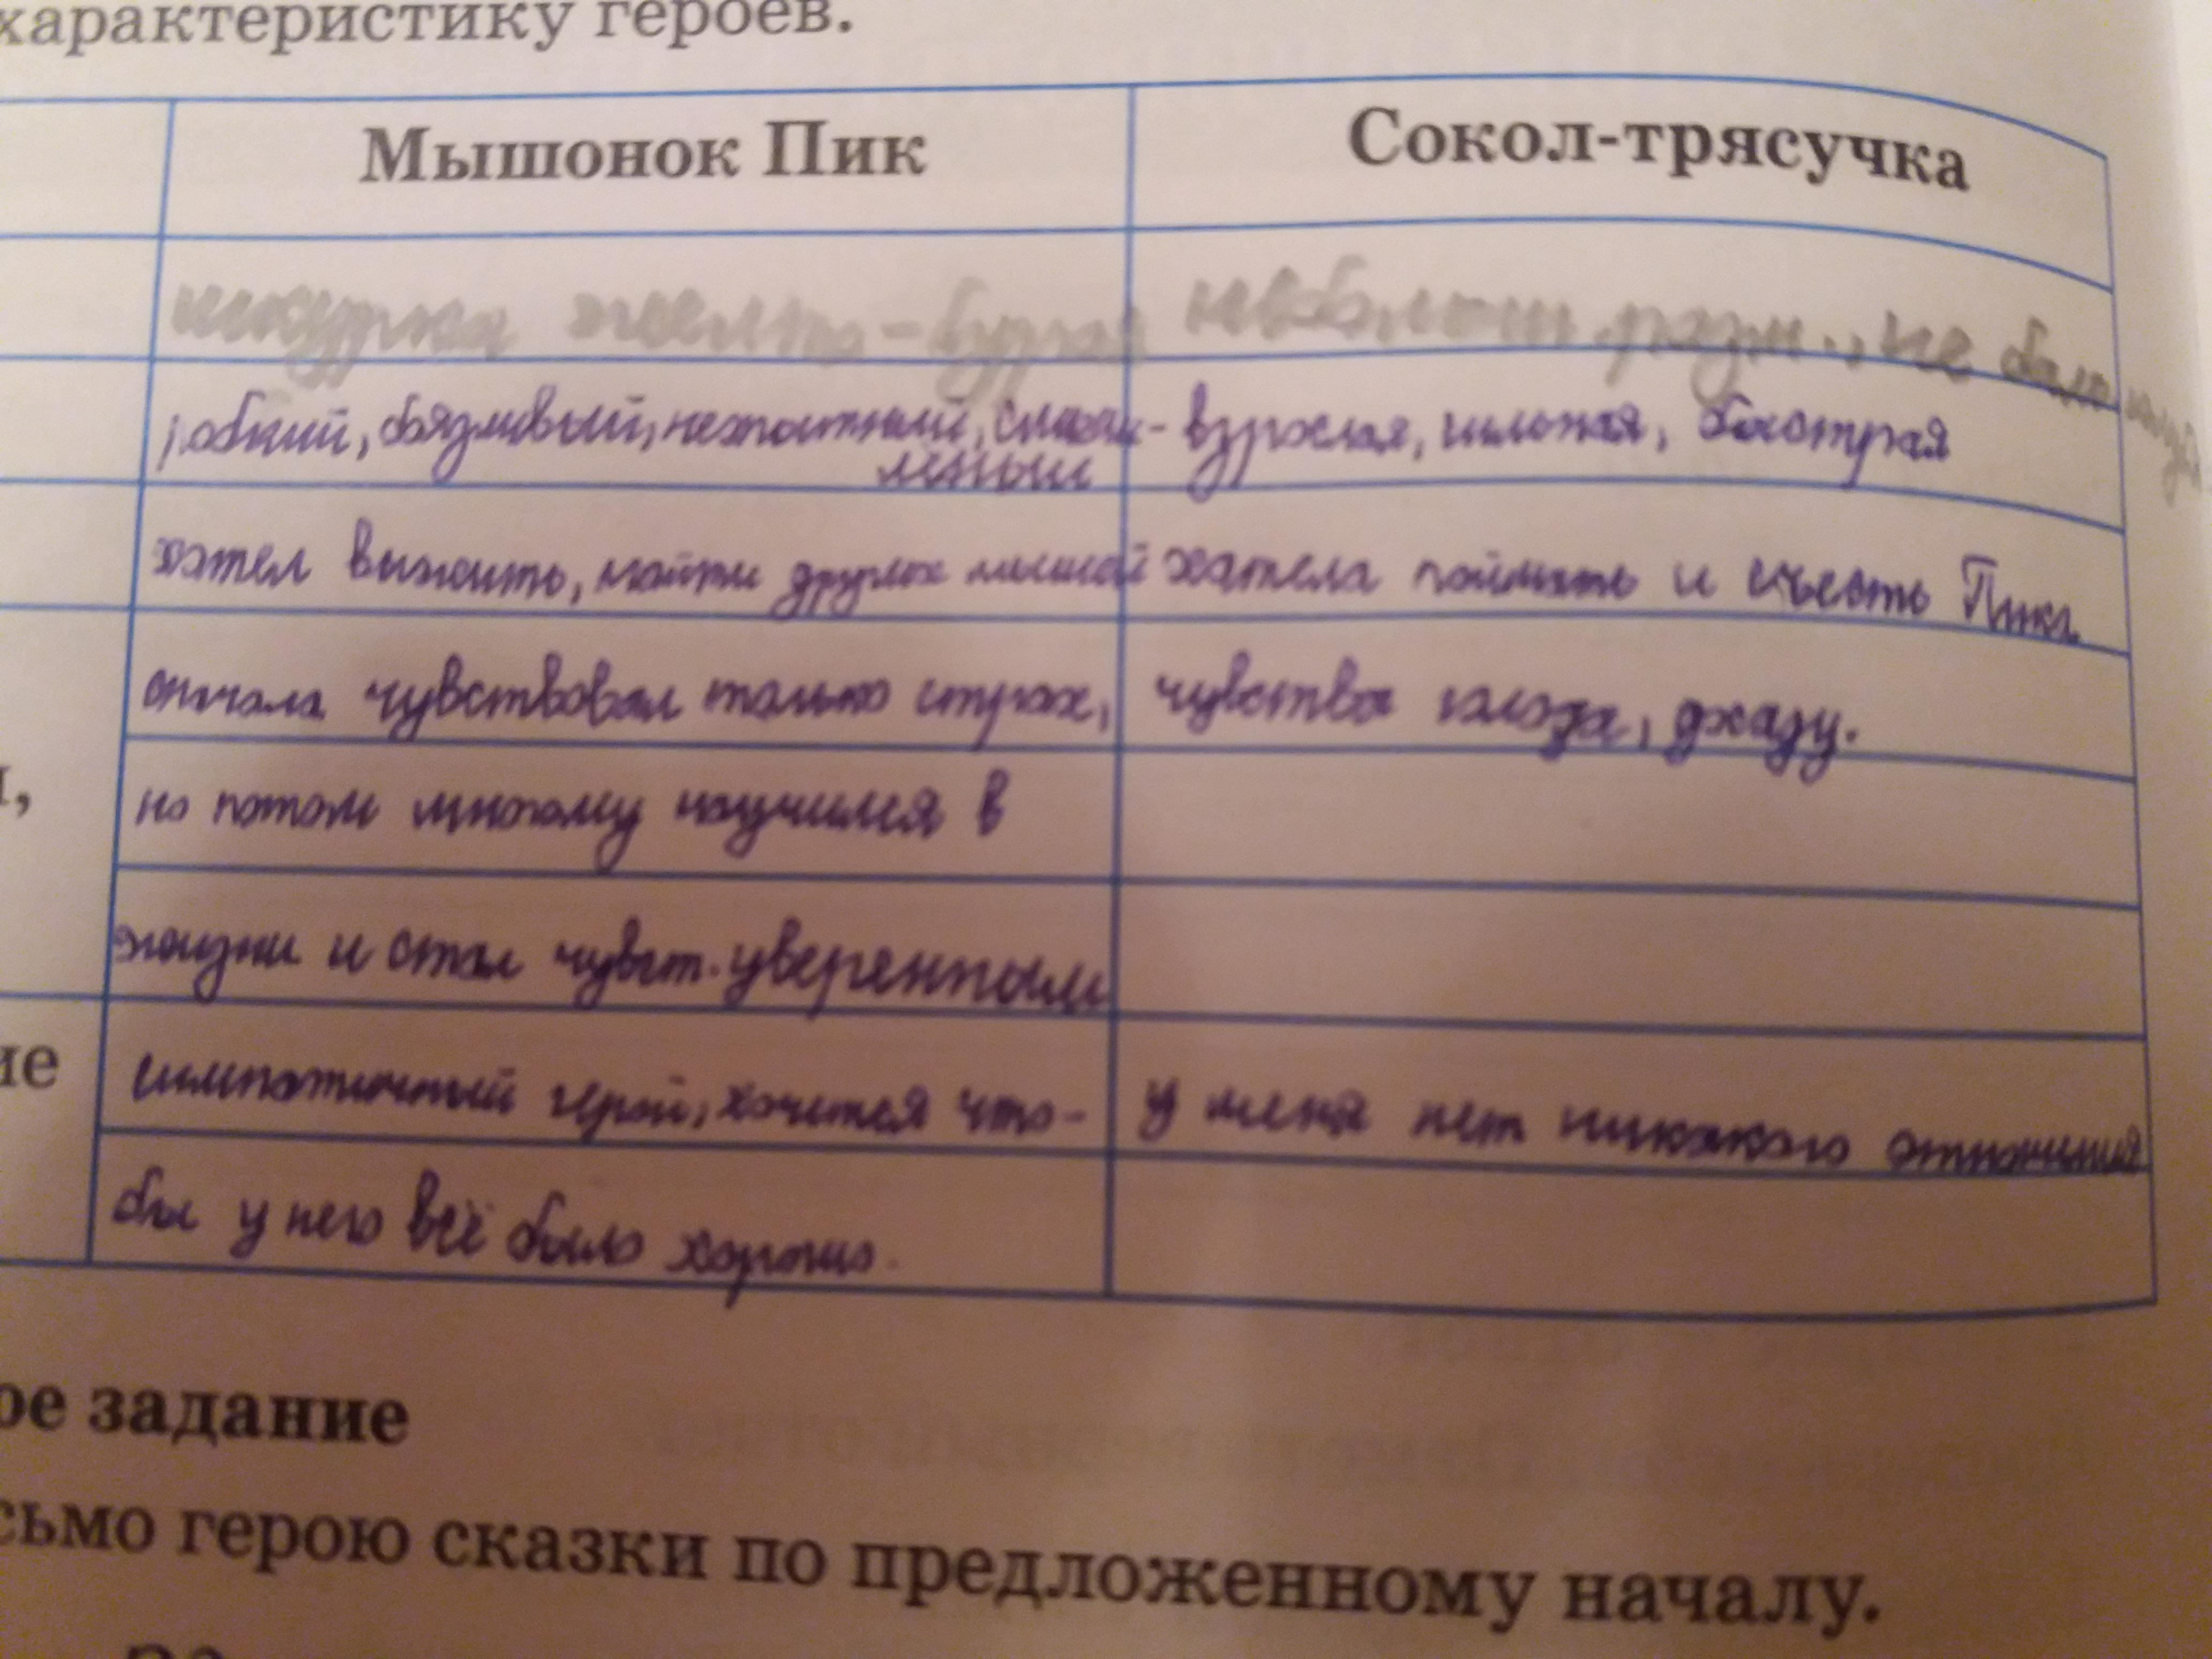 характеристику героев.
Мышонок Пик
Сокол-трясучка
шкурка желто-бурая
небольш. разм., не
робкий, боязливый,
взрослая, сильная, быстрая
хотел выжить, найти других мышей
хотела поймать и съесть Пика.
сначала чувствовал только страх,
чувства голода,
но потом многому научился в
жизни и стал чувст. уверенным
симпатичный герой, хочется что-
у меня нет никакого отношения
бы у него всё было хорошо.
ое задание
сьмо герою сказки по предложенному началу.